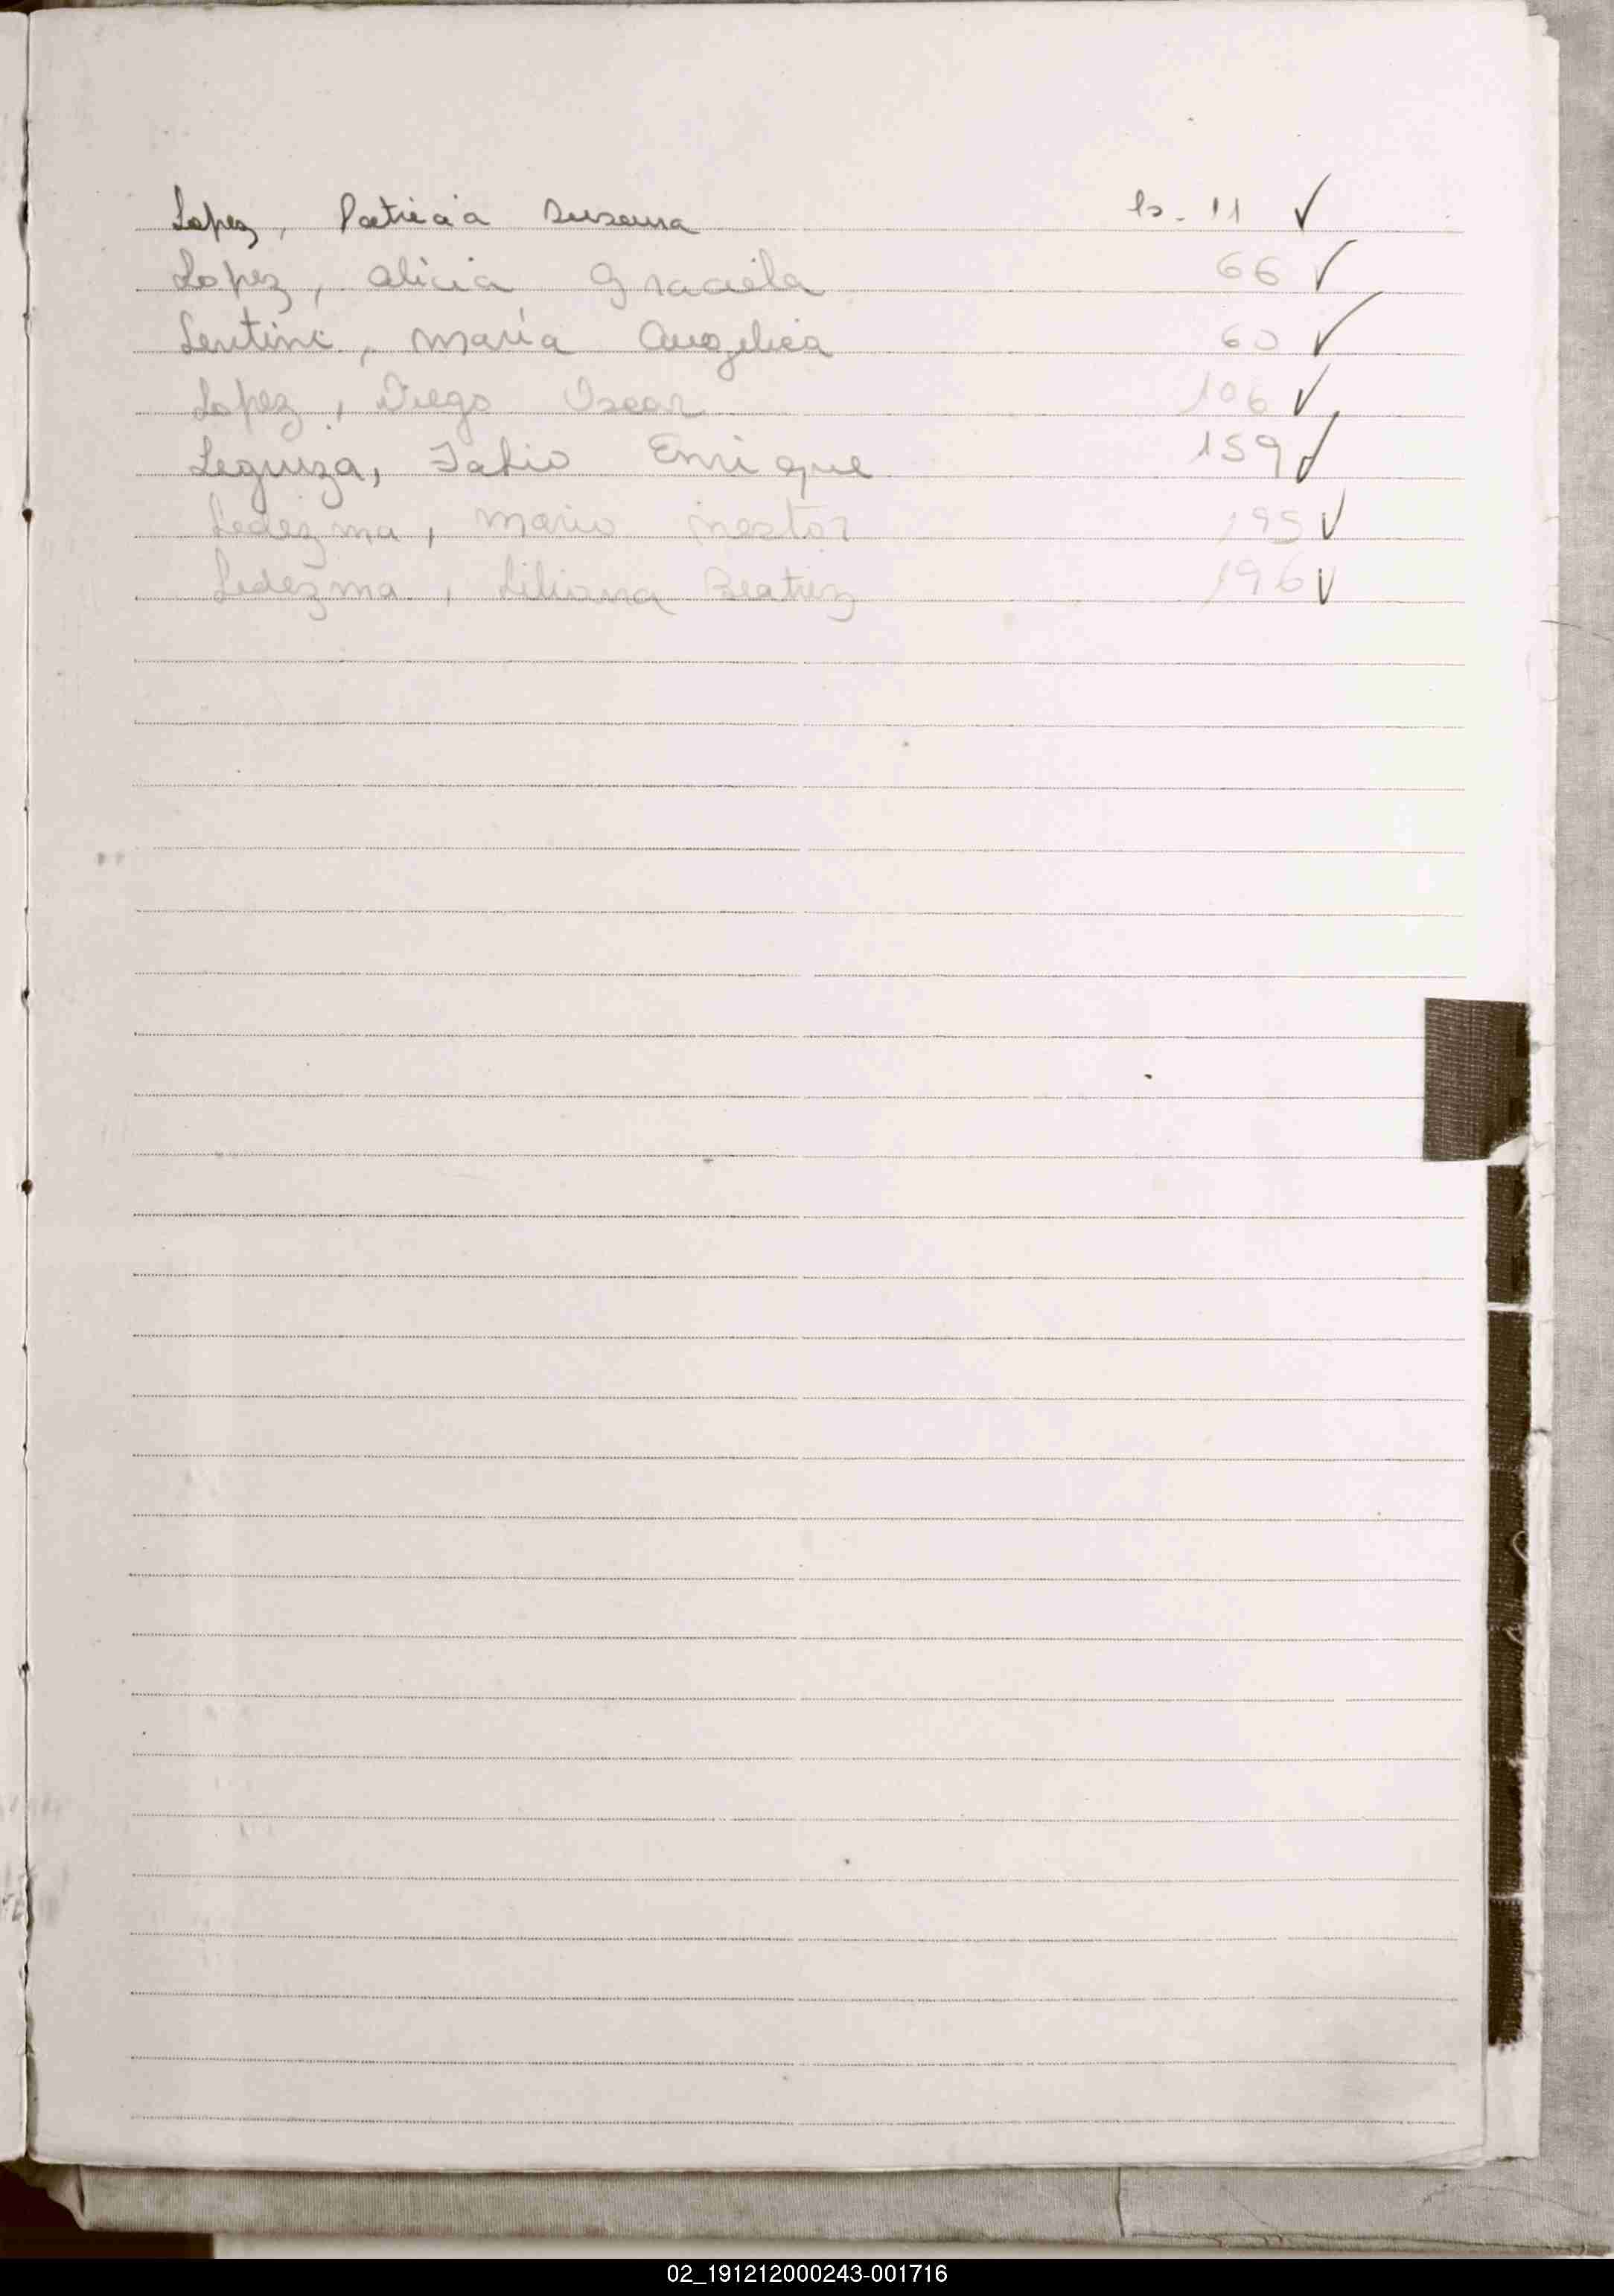 Lopez, Patricia Susana 11 ✓
Lopez, Alicia Graciela 66 ✓
Lentini, Maria Angelica 60 ✓
Lopez, Diego Oscar 106 ✓
Leguiza, Fabio Enrique 159 ✓
Ledezma, Mario Nestor 195 ✓
Ledezma, Liliana Beatriz 196 ✓
02_191212000243-001716